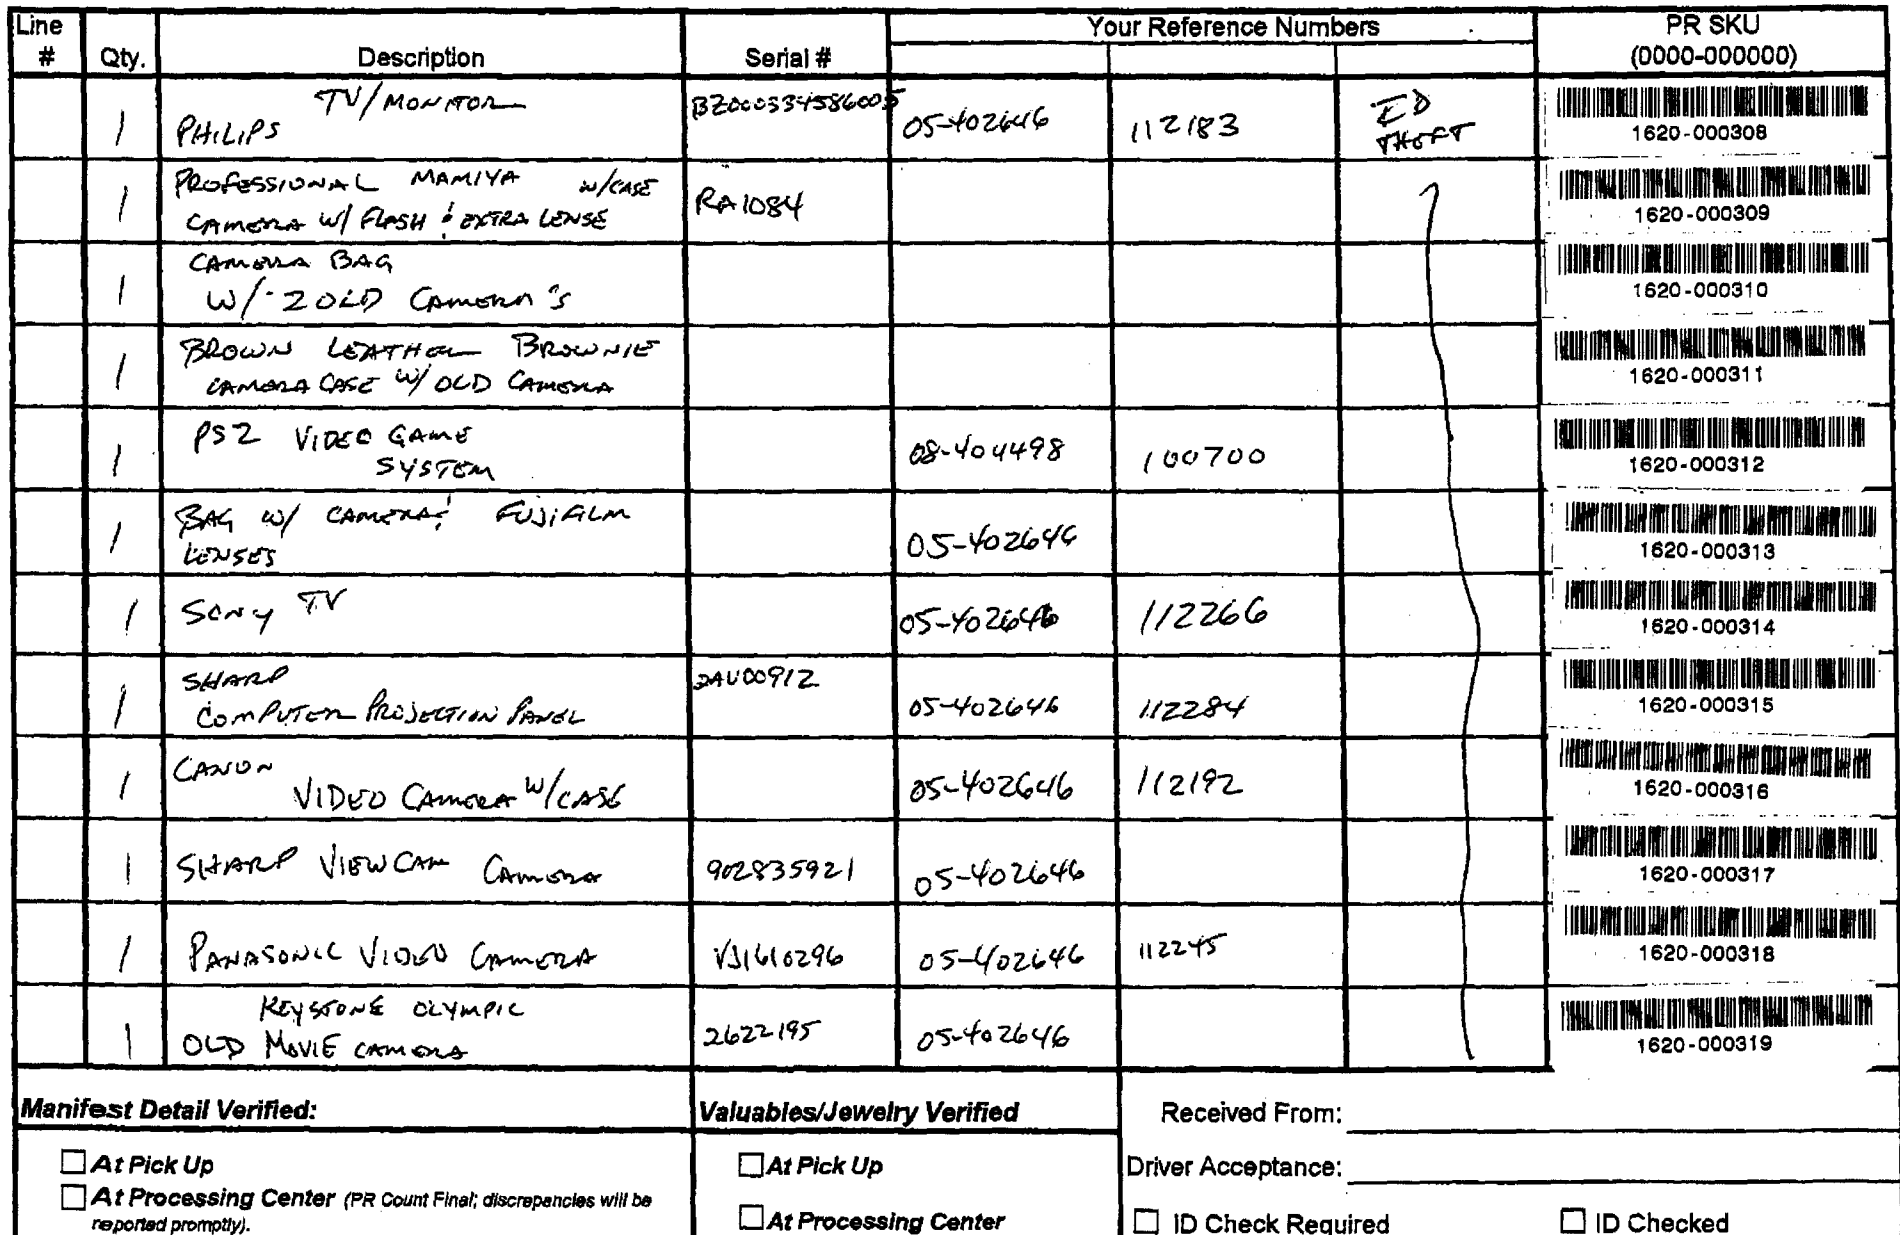 Line
#
Qty.
Description
Serial #
Your Reference Numbers
PR SKU
(0000-000000)
1
TV/MONITOR
PHILIPS
05-402646
112183
ID
THEFT
1620-000308
1
PROFESSIONAL MAMIYA W/CASE
CAMERA W/ FLASH & EXTRA LENSE
RA1084
1620-000309
1
CAMERA BAG
W/- 2 OLD CAMERA'S
1620-000310
1
BROWN LEATHER BROWNIE
CAMERA CASE W/ OLD CAMERA
1620-000311
1
PS2 VIDEO GAME
SYSTEM
08-404498
100700
1620-000312
1
BAG W/ CAMERA & FUJIFILM
LENSES
05-402646
1620-000313
1
SONY TV
05-402646
112266
1620-000314
1
SHARP
COMPUTER PROJECTION PANEL
05-402646
112284
1620-000315
1
CANON
VIDEO CAMERA W/CASE
05-402646
112192
1620-000316
1
SHARP VIEWCAM CAMERA
902835921
05-402646
1620-000317
1
PANASONIC VIDEO CAMERA
VJ1610296
05-402646
112245
1620-000318
1
KEYSTONE OLYMPIC
OLD MOVIE CAMERA
2622195
05-402646
1620-000319
Manifest Detail Verified:
At Pick Up
At Processing Center (PR Count Final; discrepancies will be
reported promptly).
Valuables/Jewelry Verified
At Pick Up
At Processing Center
Received From:
Driver Acceptance:
ID Check Required
ID Checked